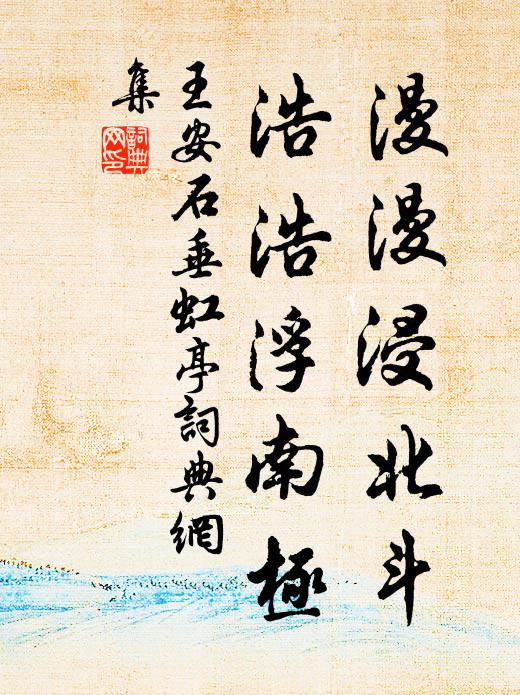 漫漫浸北斗
浩浩浮南極
王安石垂虹亭詞典網
集
詞典網印